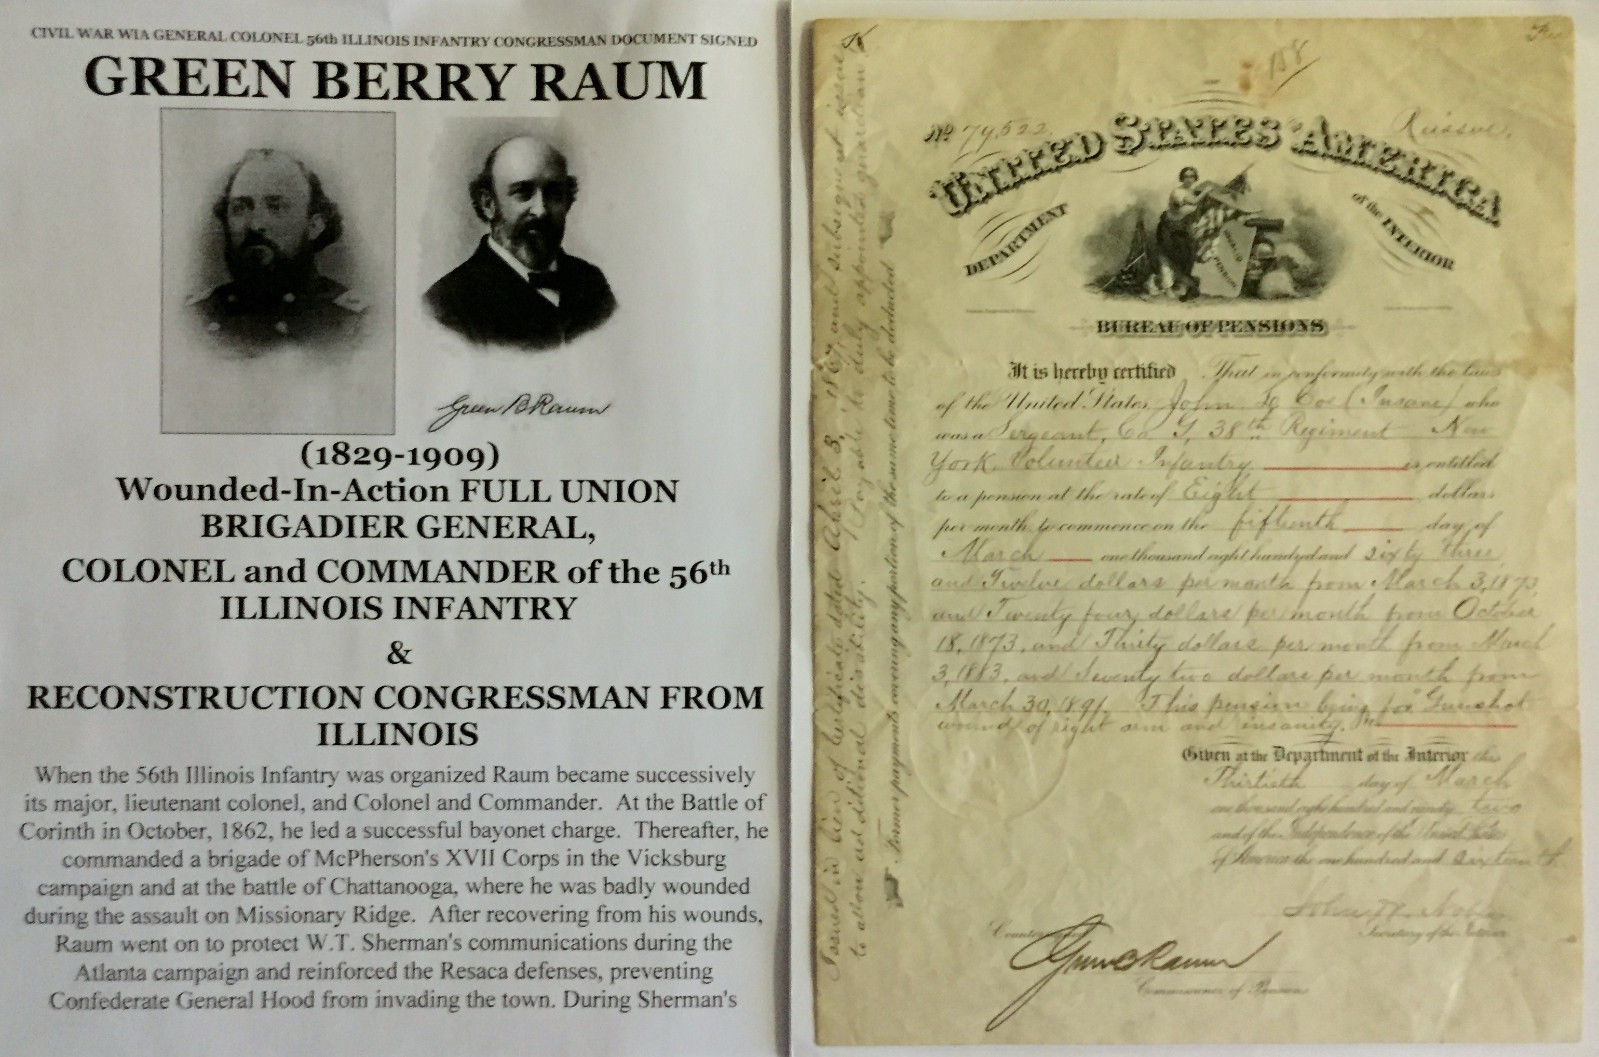 CIVIL WAR WIA GENERAL COLONEL 56th ILLINOIS INFANTRY CONGRESSMAN DOCUMENT SIGNED
GREEN BERRY RAUM
Green B Raum
(1829-1909)
Wounded-In-Action FULL UNION
BRIGADIER GENERAL,
COLONEL and COMMANDER of the 56th
ILLINOIS INFANTRY
&
RECONSTRUCTION CONGRESSMAN FROM
ILLINOIS
When the 56th Illinois Infantry was organized Raum became successively
its major, lieutenant colonel, and Colonel and Commander. At the Battle of
Corinth in October, 1862, he led a successful bayonet charge. Thereafter, he
commanded a brigade of McPherson's XVII Corps in the Vicksburg
campaign and at the battle of Chattanooga, where he was badly wounded
during the assault on Missionary Ridge. After recovering from his wounds,
Raum went on to protect W.T. Sherman's communications during the
Atlanta campaign and reinforced the Resaca defenses, preventing
Confederate General Hood from invading the town. During Sherman's
No 74,522
Reissue.
UNITED STATES OF AMERICA
DEPARTMENT
of the INTERIOR
BUREAU OF PENSIONS
It is hereby certified That in conformity with the laws
of the United States John Coe (Insane) who
was a Sergeant, Co. 38th Regiment New
York Volunteer Infantry is entitled
to a pension at the rate of Eight dollars
per month, to commence on the fifteenth day of
March one thousand eight hundred and sixty three
and Twelve dollars per month from March 3, 1873
and Twenty four dollars per month from October
18, 1873, and Thirty dollars per month from March
3, 1883, and Seventy two dollars per month from
March 30, 1891. This pension being for "Gunshot
wound of right arm and insanity."
Given at the Department of the Interior this
Thirtieth day of March
one thousand eight hundred and ninety two
and of the Independence of the United States
of America the one hundred and sixteenth
John W. Noble
Secretary of the Interior
Green B Raum
Commissioner of Pensions
Issued in lieu of certificate dated April 3, 1867, and subsequent issues
to allow additional disability. Payable to duly appointed guardian
Former payments covering any portion of the same time to be deducted